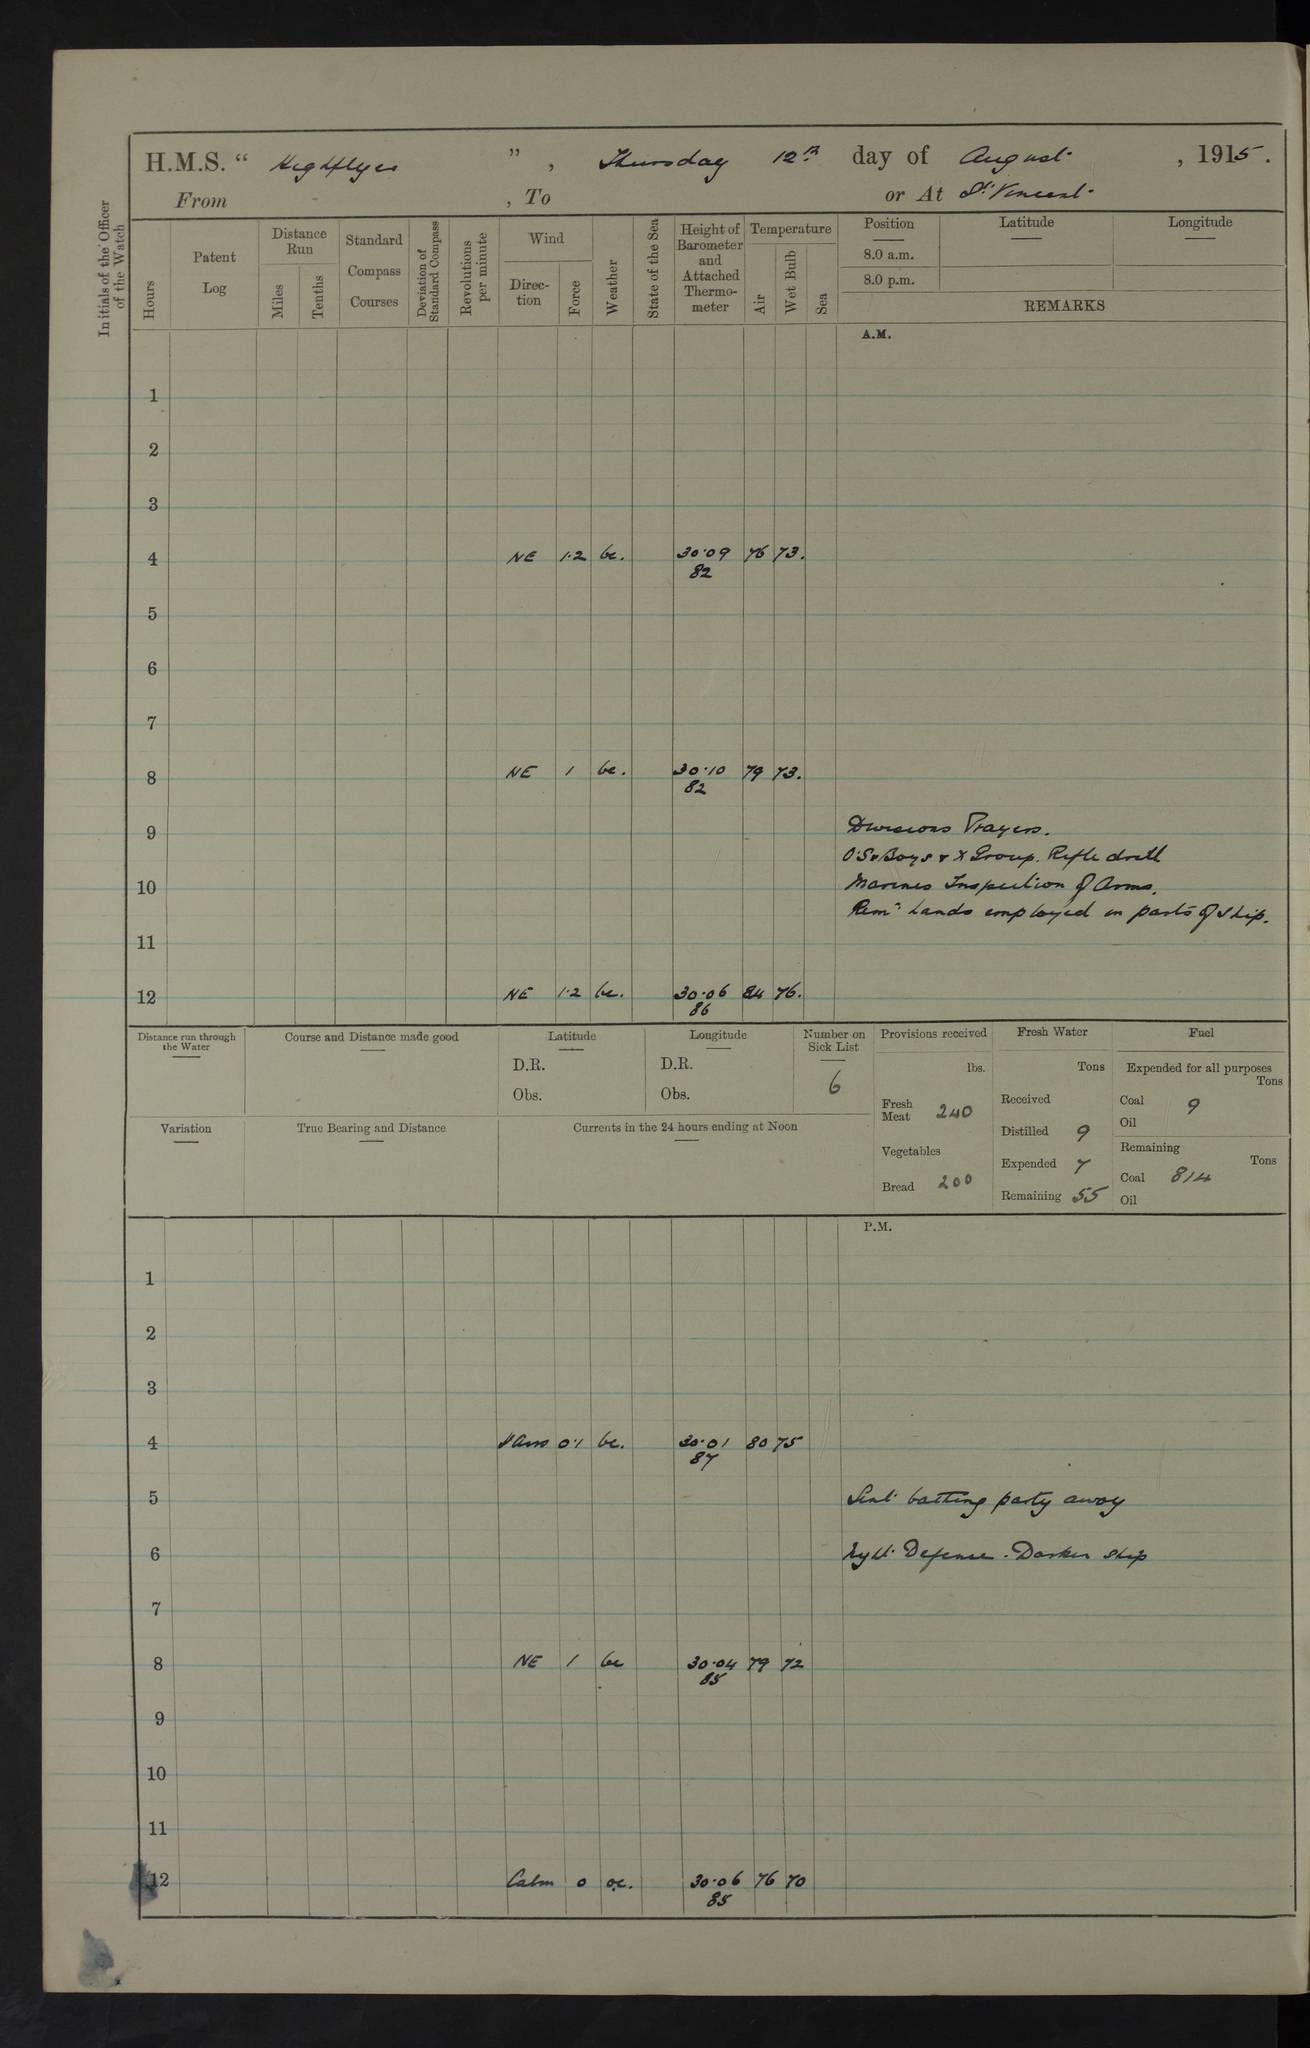 H.M.S. " Highflyer ", Thursday 12th day of August, 1915.
From , To or At St. Vincent
Initials of the Officer of the Watch
Hours
Patent Log
Distance Run
Miles
Tenths
Standard Compass Courses
Deviation of Standard Compass
Revolutions per minute
Wind
Direction
Force
Weather
State of the Sea
Height of Barometer and Attached Thermometer
Temperature
Air
Wet Bulb
Sea
Position Latitude Longitude
8.0 a.m.
8.0 p.m.
REMARKS
A.M.
1
2
3
4 NE 1.2 bc. 30.09 76 73.
82
5
6
7
8 NE 1 bc. 30.10 79 73.
82
9 Divisions Prayers.
O.S & Boys & X Group. Rifle drill
10 Marines Inspection of Arms.
Remr hands employed in parts of ship.
11
12 NE 1.2 bc. 30.06 84 76.
86
Distance run through the Water
Course and Distance made good
Latitude
D.R.
Obs.
Longitude
D.R.
Obs.
Number on Sick List
6
Provisions received
lbs.
Fresh Meat 240
Vegetables
Bread 200
Fresh Water
Tons
Received
Distilled 9
Expended 7
Remaining 55
Fuel
Expended for all purposes
Tons
Coal 9
Oil
Remaining
Tons
Coal 814
Oil
Variation
True Bearing and Distance
Currents in the 24 hours ending at Noon
P.M.
1
2
3
4 0.1 bc. 30.01 80 75
87
5 Sent bathing party away
6 Night Defence. Darken ship
7
8 NE 1 bc 30.04 79 72
85
9
10
11
12 Calm 0 oc. 30.06 76 70
85